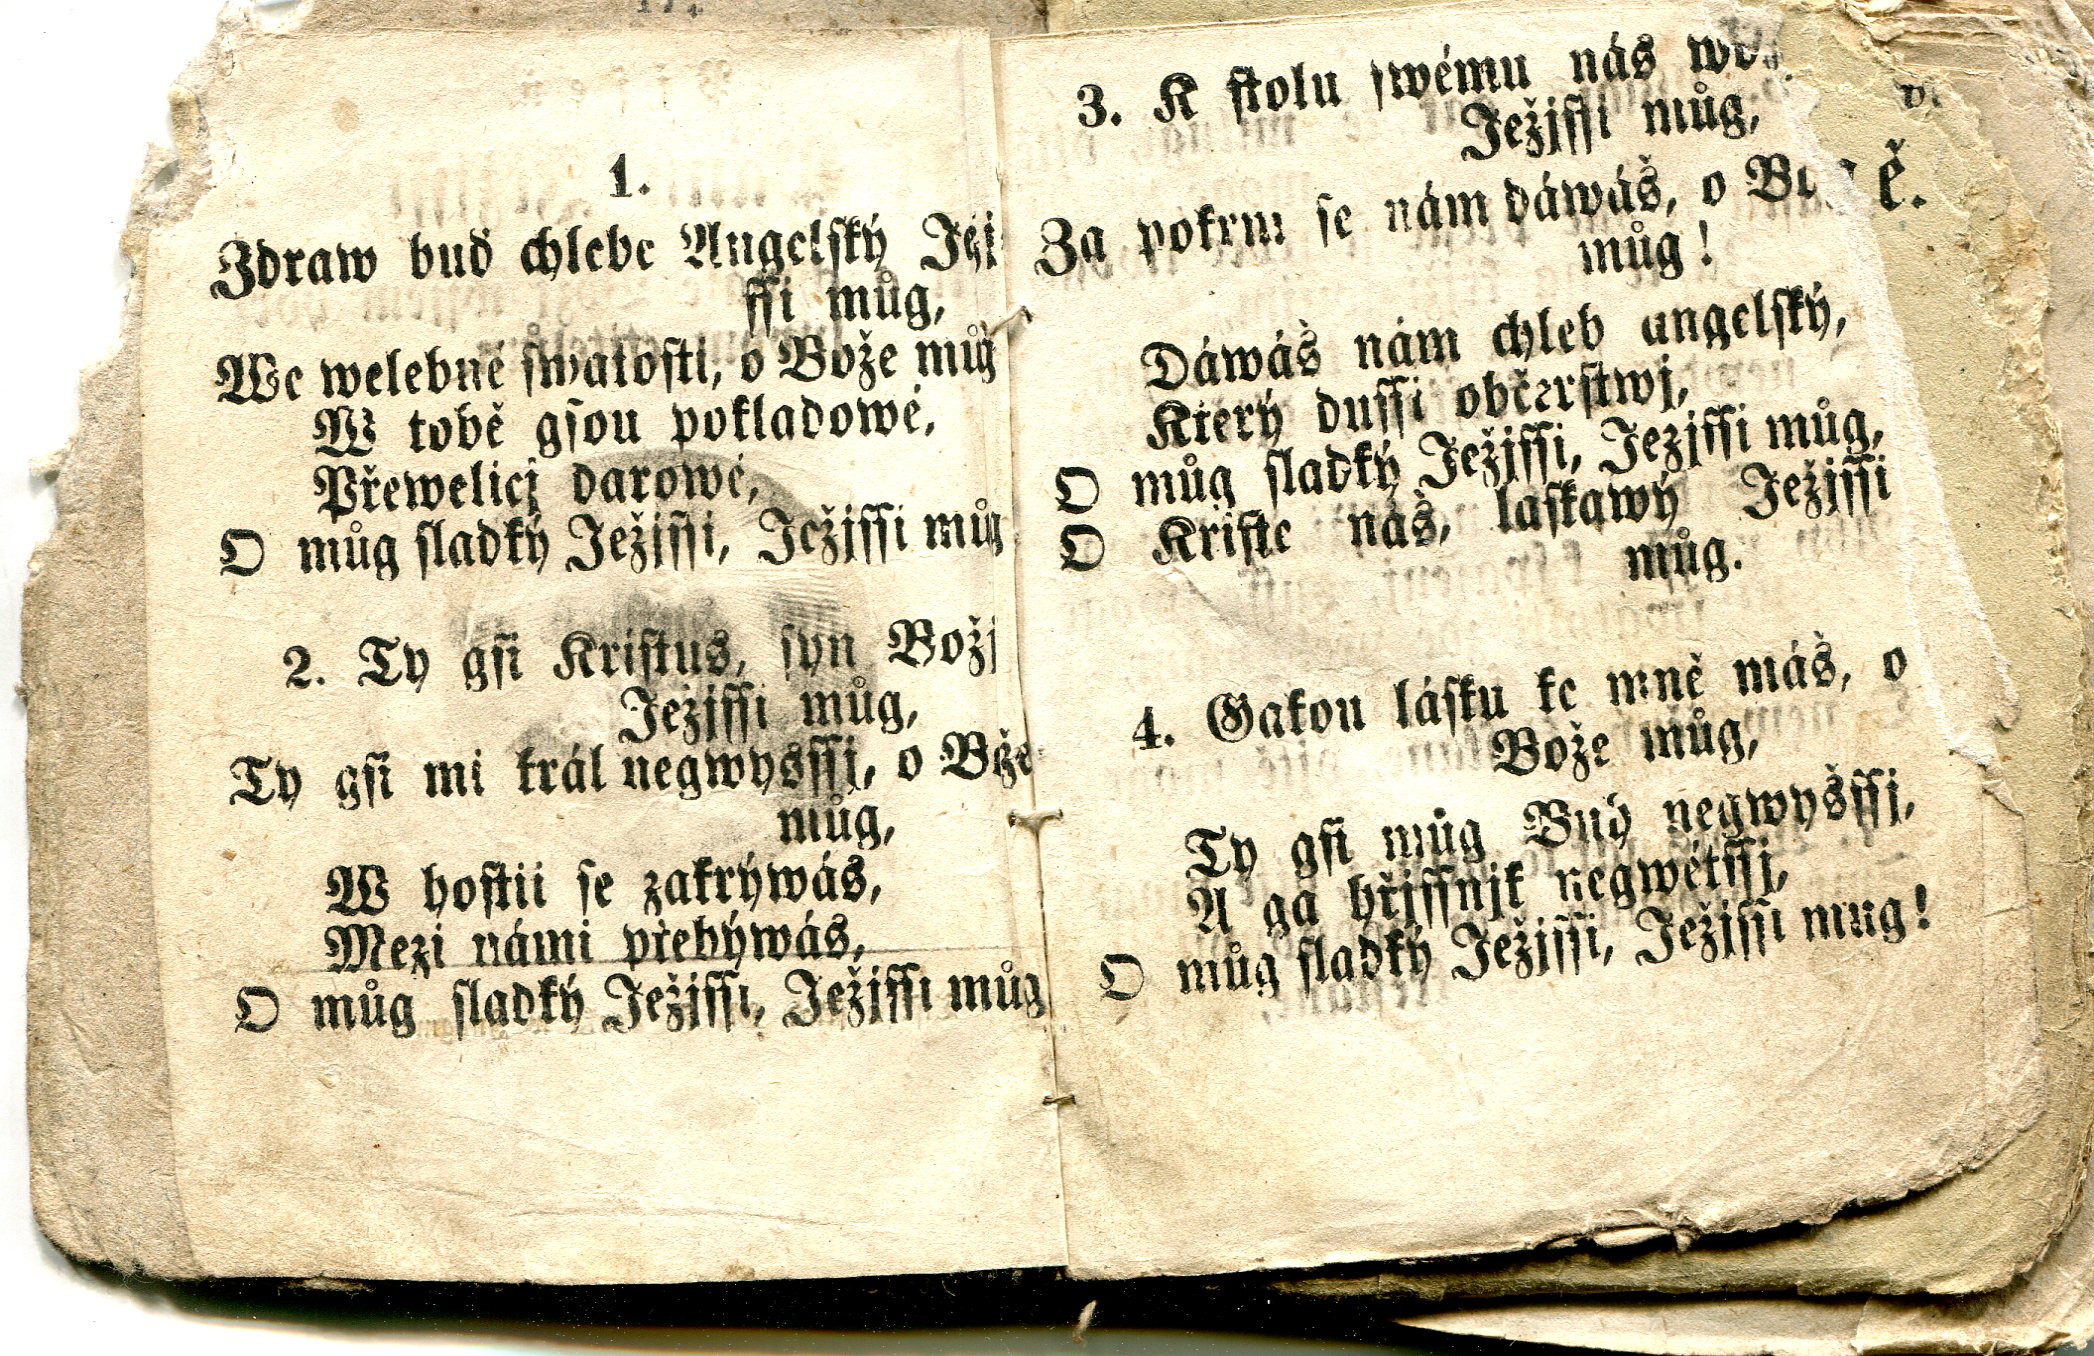 1.
Zdraw buď chlebe Angelský Ježj-
ssi můg,
We welebné swatosti, o Bože můg
W tobě gsou pokladowé,
Přewelicj darowé,
O můg sladký Ježjssi, Ježjssi můg
2. Ty gsi Kristus, syn Božj
Ježjssi můg,
Ty gsi mi král negwysssj, o Bože
můg,
W hostii se zakrýwás,
Mezi námi přebýwás,
O můg sladký Ježjssi, Ježjssi můg
3. K stolu swému nás
Ježjssi můg,
Za pokrm se nám dáwáš, o
můg!
Dáwáš nám chleb angelský,
Který dussi občerstwj,
O můg sladký Ježjssi, Ježjssi můg,
O Kriste náš, laskawý Ježjssi
můg.
4. Gakou lásku ke mně máš, o
Bože můg,
Ty gsi můg Buh negwyšssj,
A ga hřjssnjk negwětssj,
O můg sladký Ježjssi, Ježjssi mug!
ě.